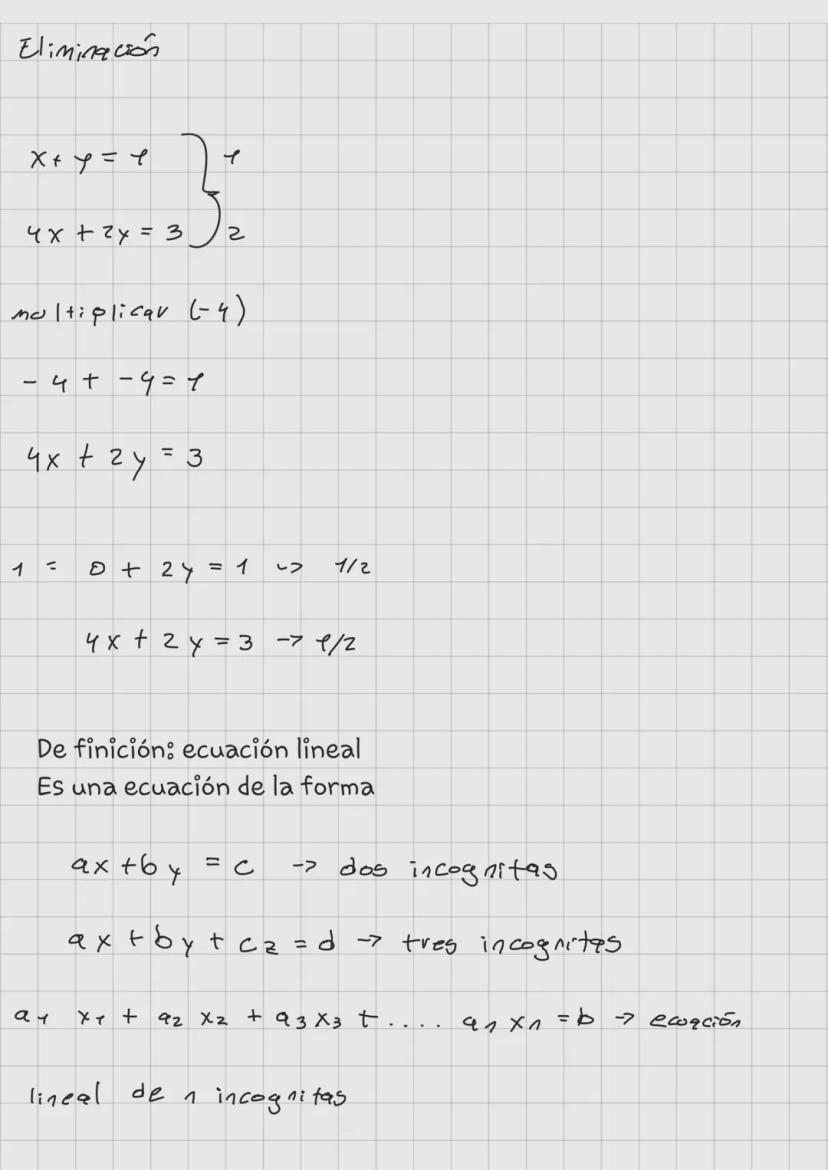 Eliminación
x + y = 1 } 1
4x + 2y = 3 } 2
multiplicar (-4)
- 4 + -4 = 1
4x + 2y = 3
1 = 0 + 2y = 1 -> 1/2
4x + 2y = 3 -> 1/2
De finición: ecuación lineal
Es una ecuación de la forma
ax + by = c -> dos incognitas
ax + by + cz = d -> tres incognitas
a1 x1 + a2 x2 + a3 x3 + .... an xn = b -> ecuación
lineal de n incognitas